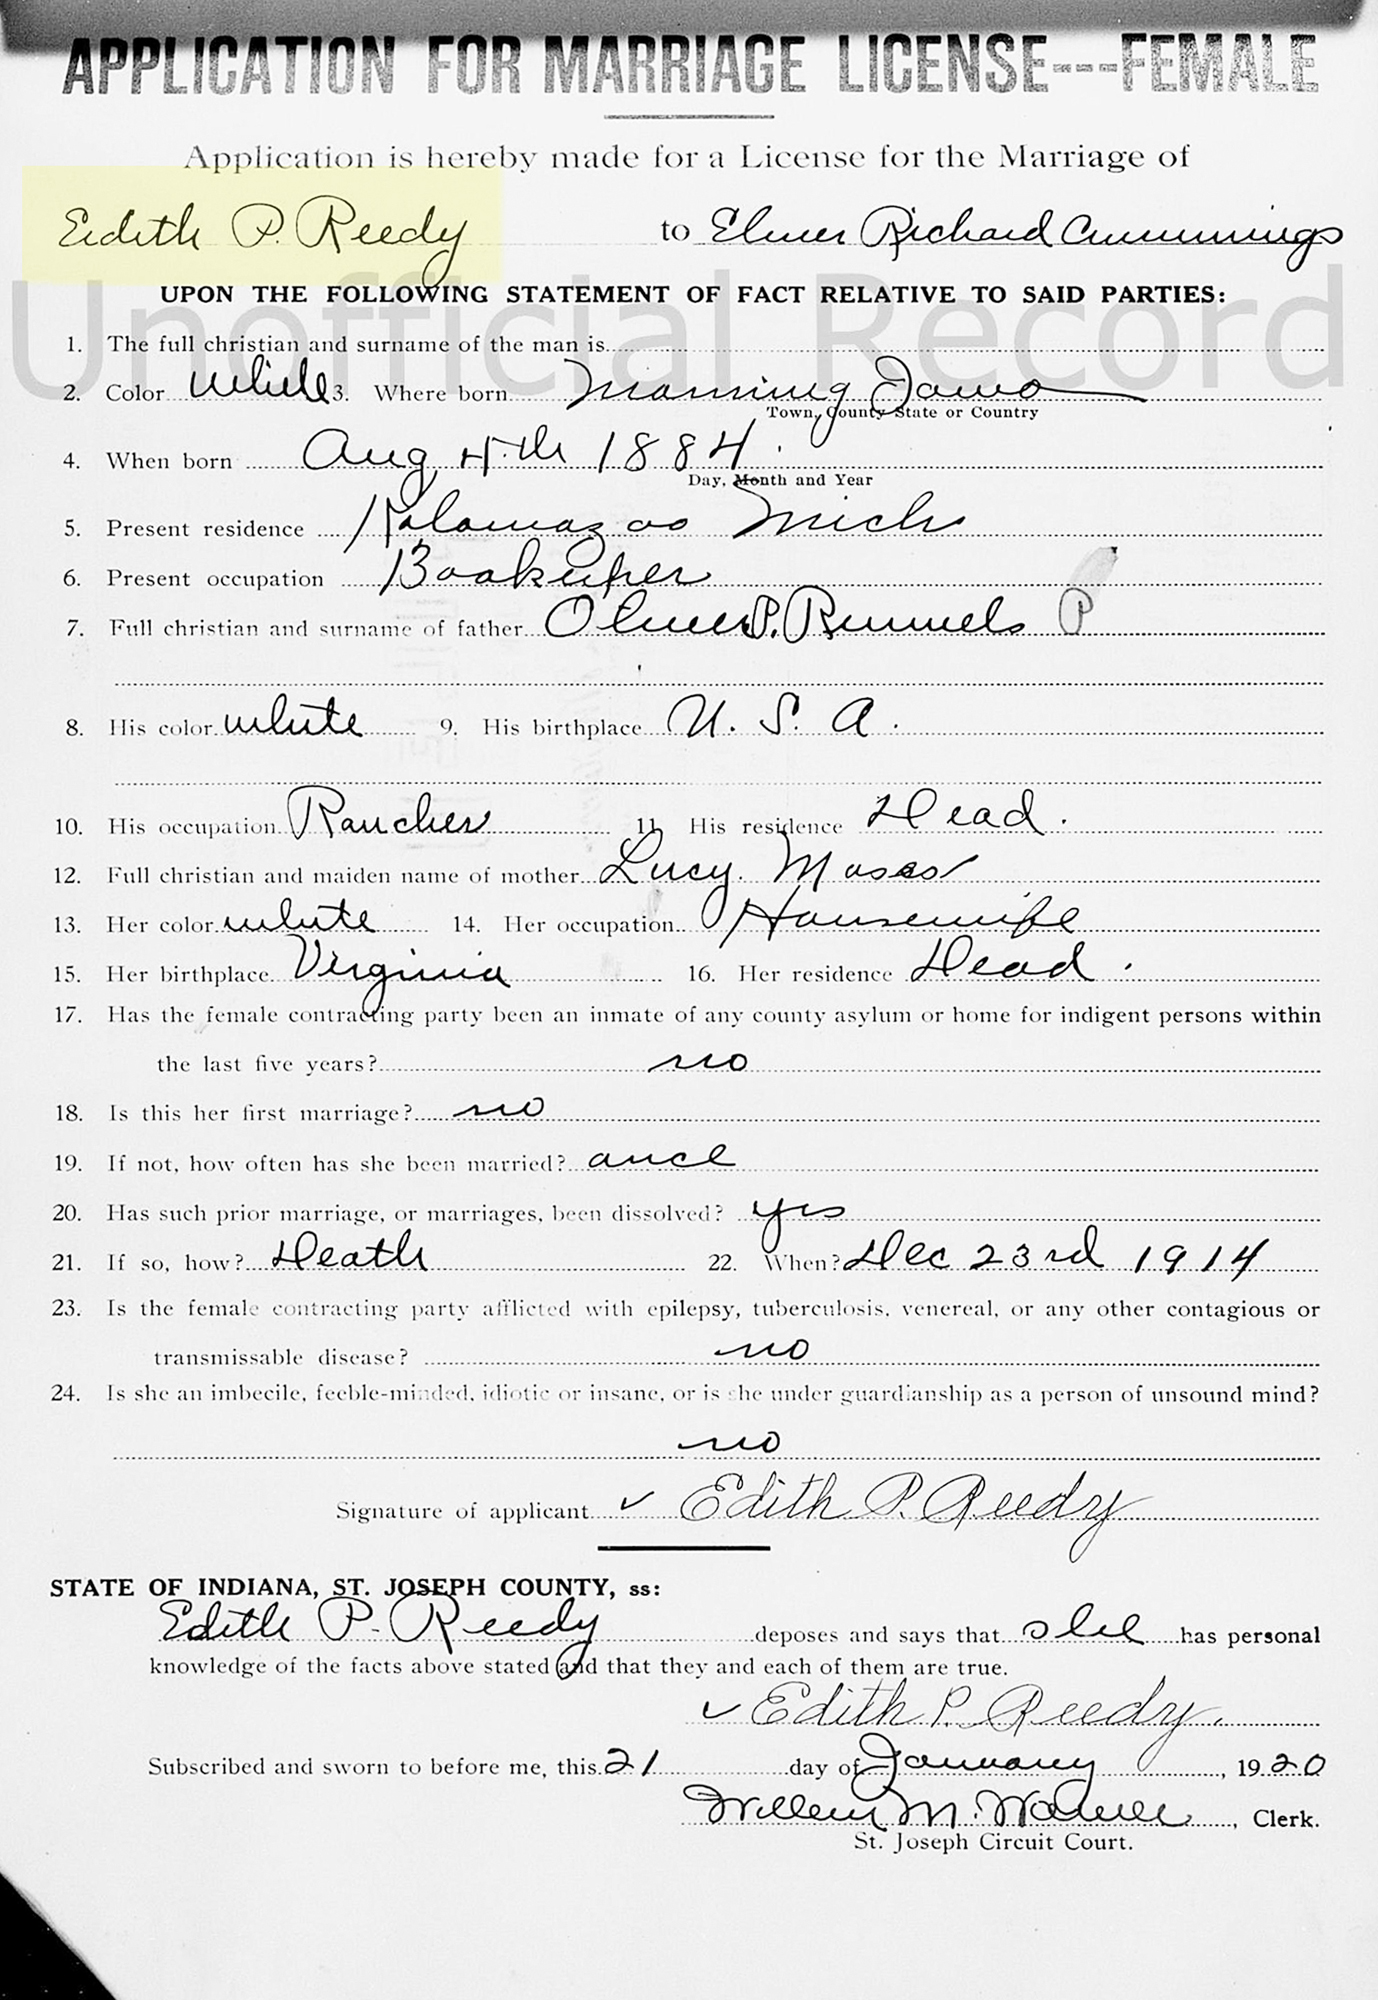 APPLICATION FOR MARRIAGE LICENSE---FEMALE
Application is hereby made for a License for the Marriage of
Edith P. Reedy to Elmer Richard Cummings
Unofficial Record
UPON THE FOLLOWING STATEMENT OF FACT RELATIVE TO SAID PARTIES:
1. The full christian and surname of the man is
2. Color White 3. Where born Manning Iowa
Town, County State or Country
4. When born Aug 4th 1884.
Day, Month and Year
5. Present residence Kalamazoo Mich
6. Present occupation Bookeeper
7. Full christian and surname of father P. Runnels P
8. His color white 9. His birthplace U. S. A.
10. His occupation Rancher 11. His residence Dead.
12. Full christian and maiden name of mother Lucy. Moses
13. Her color white 14. Her occupation Housewife
15. Her birthplace Virginia 16. Her residence Dead.
17. Has the female contracting party been an inmate of any county asylum or home for indigent persons within
the last five years? no
18. Is this her first marriage? no
19. If not, how often has she been married? once
20. Has such prior marriage, or marriages, been dissolved? yes
21. If so, how? Death 22. When? Dec 23rd 1914
23. Is the female contracting party afflicted with epilepsy, tuberculosis, venereal, or any other contagious or
transmissable disease? no
24. Is she an imbecile, feeble-minded, idiotic or insane, or is she under guardianship as a person of unsound mind?
no
Signature of applicant ✓ Edith P. Reedy
STATE OF INDIANA, ST. JOSEPH COUNTY, ss:
Edith P. Reedy deposes and says that she has personal
knowledge of the facts above stated and that they and each of them are true.
✓ Edith P. Reedy.
Subscribed and sworn to before me, this 21 day of January, 1920
M., Clerk.
St. Joseph Circuit Court.